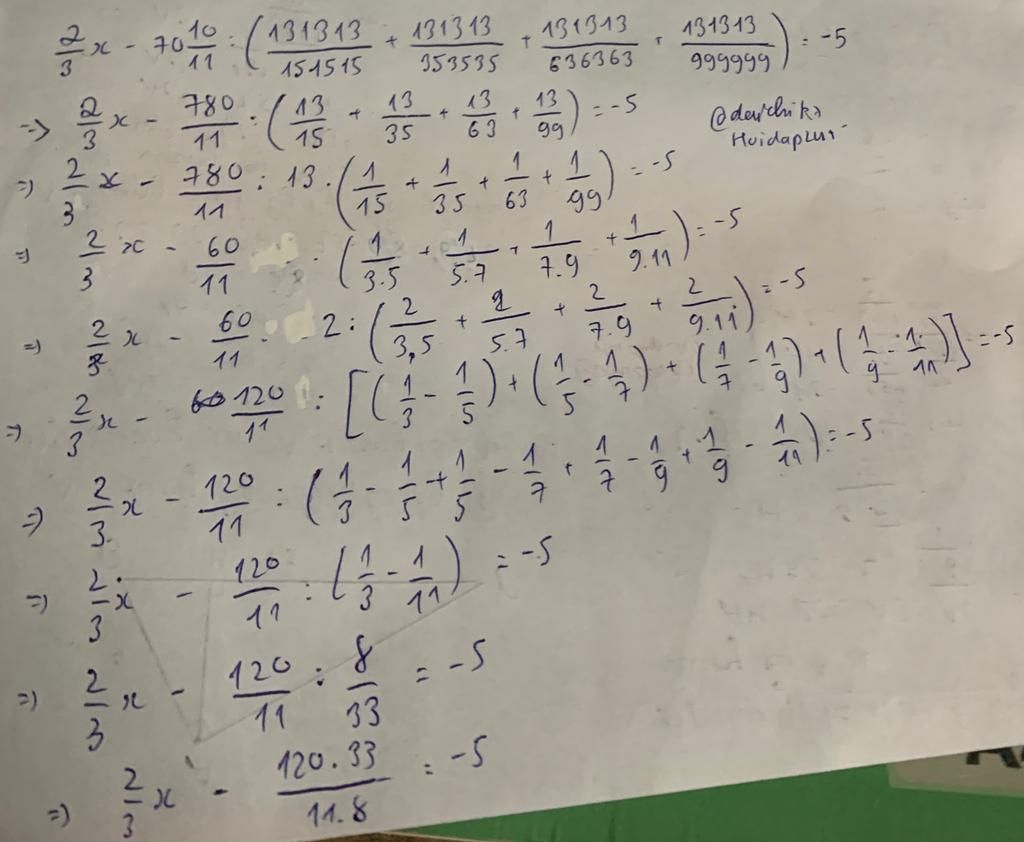 2/3 x - 70 10/11 : (131313/151515 + 131313/353535 + 131313/636363 + 131313/999999) = -5
=> 2/3 x - 780/11 : (13/15 + 13/35 + 13/63 + 13/99) = -5
=> 2/3 x - 780/11 : 13 . (1/15 + 1/35 + 1/63 + 1/99) = -5
=> 2/3 x - 60/11 . (1/3.5 + 1/5.7 + 1/7.9 + 1/9.11) = -5
=> 2/3 x - 60/11 . 2 : (2/3,5 + 2/5.7 + 2/7.9 + 2/9.11) = -5
=> 2/3 x - 120/11 : [(1/3 - 1/5) + (1/5 - 1/7) + (1/7 - 1/9) + (1/9 - 1/11)] = -5
=> 2/3 x - 120/11 : (1/3 - 1/5 + 1/5 - 1/7 + 1/7 - 1/9 + 1/9 - 1/11) = -5
=> 2/3 x - 120/11 : (1/3 - 1/11) = -5
=> 2/3 x - 120/11 : 8/33 = -5
=> 2/3 x - 120.33/11.8 = -5